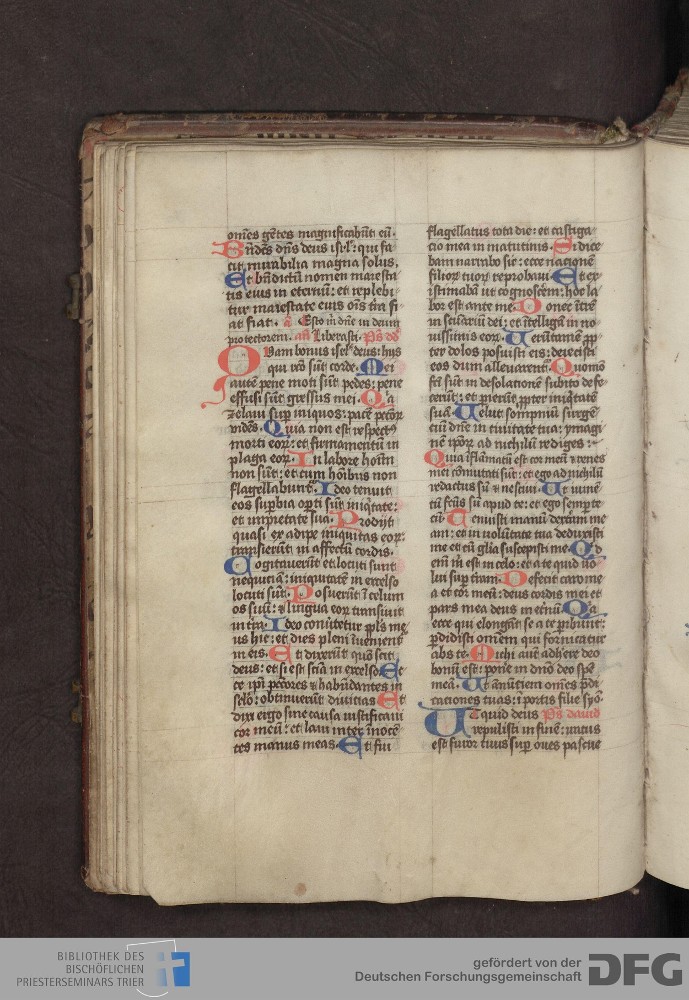 om̄es gētes magnificabūt eū.
Bn̄dc̄s dn̄s deus isrl̄: qui fa
cit mirabilia magna solus.
Et bn̄dictū nomen maiesta
tis eius in eternū: et replebi
tur maiestate eius ois t̄ra fi
at fiat. a Esto m̄ dn̄e in deum
protectorem. an̄ Liberasti. Ps dd
Quam bonus isrl̄ deus: hijs
qui rc̄o sūt corde. Mei
autē pene moti sūt pedes: pene
effusi sūt gressus mei. Qa
zelaui sup iniquos: pacē pctōꝝ
vidēs. Quia non est respectꝰ
morti eoꝝ: et firmamentū in
plaga eoꝝ. In labore hoīm
non sūt: et cum hōibus non
flagellabunt̄. Ideo tenuit
eos supbia opti sūt iniqtate:
et impietate sua. Prodijt
quasi ex adipe iniquitas eoꝝ:
transierūt in affectū cordis.
Cogitauerūt et locuti sunt
nequiciā: iniquitatē in excelso
locuti sūt. Posuerūt ī celum
os suū: et lingua eoꝝ transiuit
in t̄ra. Ideo conūtetur ppls me
us hic: et dies pleni īuenient̄
in eis. Et dixerūt quō scit
deus: et si est sciā in excelso. Et
ce ipi pctores et habūdantes in
sclō: obtinuerūt diuicias. Et
dixi ergo sine causa iustificaui
cor meū: et laui inter inocē
tes manus meas. Et fui
flagellatus tota die: et castiga
cio mea in matutinis. Si dice
bam narrabo sic: ecce nacionē
filioꝝ tuoꝝ reprobaui. Et ex
istimabā ut cognoscē̄m: hoc la
bor est ante me. Donec ītrē
in scūariū dei: et ītelligā in no
uissimis eoꝝ. Verūtamē ꝓp
ter dolos posuisti eis: deiecisti
eos dum alleuarent̄. Quomō
fc̄i sūt in desolationē subito defe
cerūt: et pierūt ꝓpter iniqtatē
suā. Velut sompniū surgē
ciū dn̄e in ciuitate tua: ymagi
nē ipoꝝ ad nichilū rediges :
Quia īflamatū est cor meū et renes
mei cōmutati sūt: et ego ad nichilū
redactus sū et nesciui. Vt iumē
tū fc̄us sū apud te: et ego semp te
cū. Tenuisti manū dextram me
am: et in volūtate tua deduxisti
me et cū glia suscepisti me. Qd
em̄ m̄ est in celo: et a te quid uo
lui sup t̄ram. Defecit caro me
a et cor meū: deus cordis mei et
pars mea deus in et̄nū. Qa
ecce qui elongāt se a te pibunt:
pdidisti om̄em qui fornicatur
abs te. Michi autē adh̄ere deo
bonū est: pon̄e in dn̄o deo spē
meā. Vt anūtiem om̄es pdi
cationes tuas: ī portis filie syō.
Vt quid deus Ps dauid
repulisti in finē: iratus
est furor tuus sup oues pascue
BIBLIOTHEK DES
BISCHÖFLICHEN
PRIESTERSEMINARS TRIER
gefördert von der
Deutschen Forschungsgemeinschaft
DFG